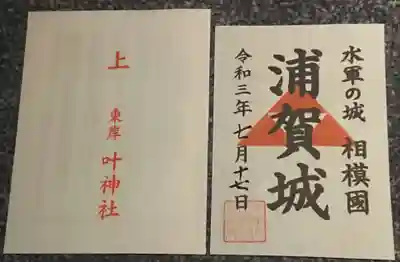 上
東岸
叶神社
水軍の城 相模國
浦賀城
令和三年七月十七日